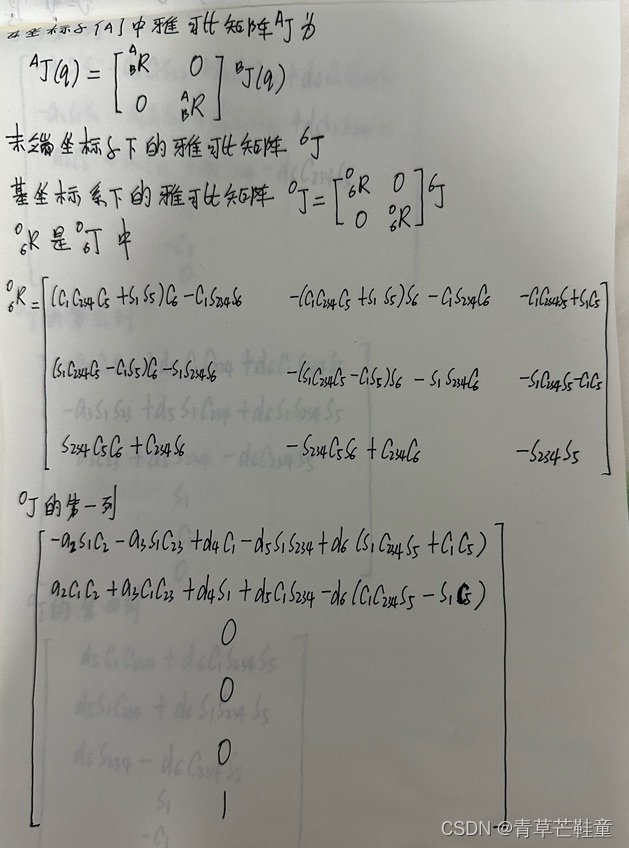 坐标系{A}中雅可比矩阵ᴬJ为
ᴬJ(q) = [ᴬ_BR 0
0 ᴬ_BR] ᴮJ(q)
末端坐标系下的雅可比矩阵 ⁶J
基坐标系下的雅可比矩阵 ⁰J = [⁰₆R 0
0 ⁰₆R] ⁶J
⁰₆R 是 ⁰₆T 中
⁰₆R = [(C₁C₂₃₄C₅ + S₁S₅)C₆ - C₁S₂₃₄S₆ -(C₁C₂₃₄C₅ + S₁S₅)S₆ - C₁S₂₃₄C₆ -C₁C₂₃₄S₅ + S₁C₅
(S₁C₂₃₄C₅ - C₁S₅)C₆ - S₁S₂₃₄S₆ -(S₁C₂₃₄C₅ - C₁S₅)S₆ - S₁S₂₃₄C₆ -S₁C₂₃₄S₅ - C₁C₅
S₂₃₄C₅C₆ + C₂₃₄S₆ -S₂₃₄C₅S₆ + C₂₃₄C₆ -S₂₃₄S₅]
⁰J的第一列
[-a₂S₁C₂ - a₃S₁C₂₃ + d₄C₁ - d₅S₁S₂₃₄ + d₆(S₁C₂₃₄S₅ + C₁C₅)
a₂C₁C₂ + a₃C₁C₂₃ + d₄S₁ + d₅C₁S₂₃₄ - d₆(C₁C₂₃₄S₅ - S₁C₅)
0
0
0
1]
CSDN @青草芒鞋童